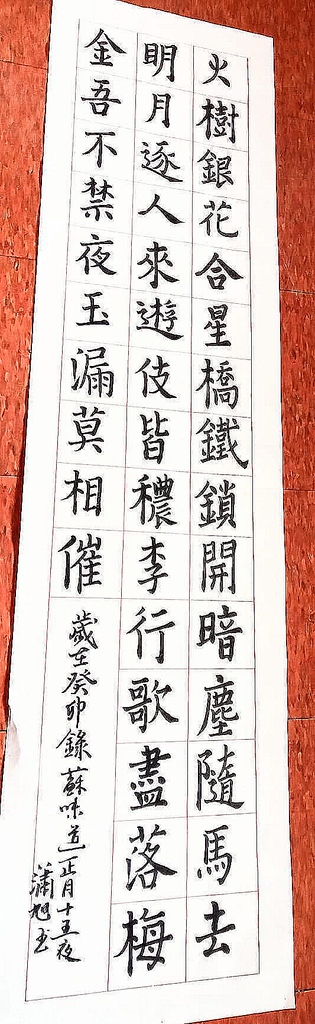 火樹銀花合星橋鐵鎖開暗塵隨馬去
明月逐人來遊伎皆穠李行歌盡落梅
金吾不禁夜玉漏莫相催
歲在癸卯錄蘇味道正月十五夜
瀟旭书